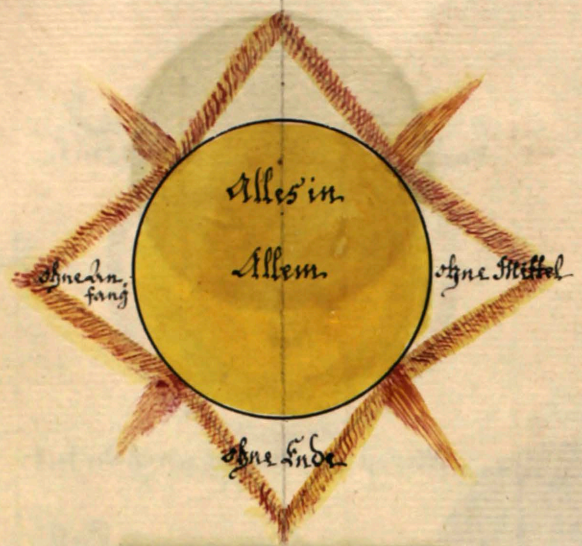 Alles in
Allem
ohne An-
fang
ohne Mittel
ohne Ende